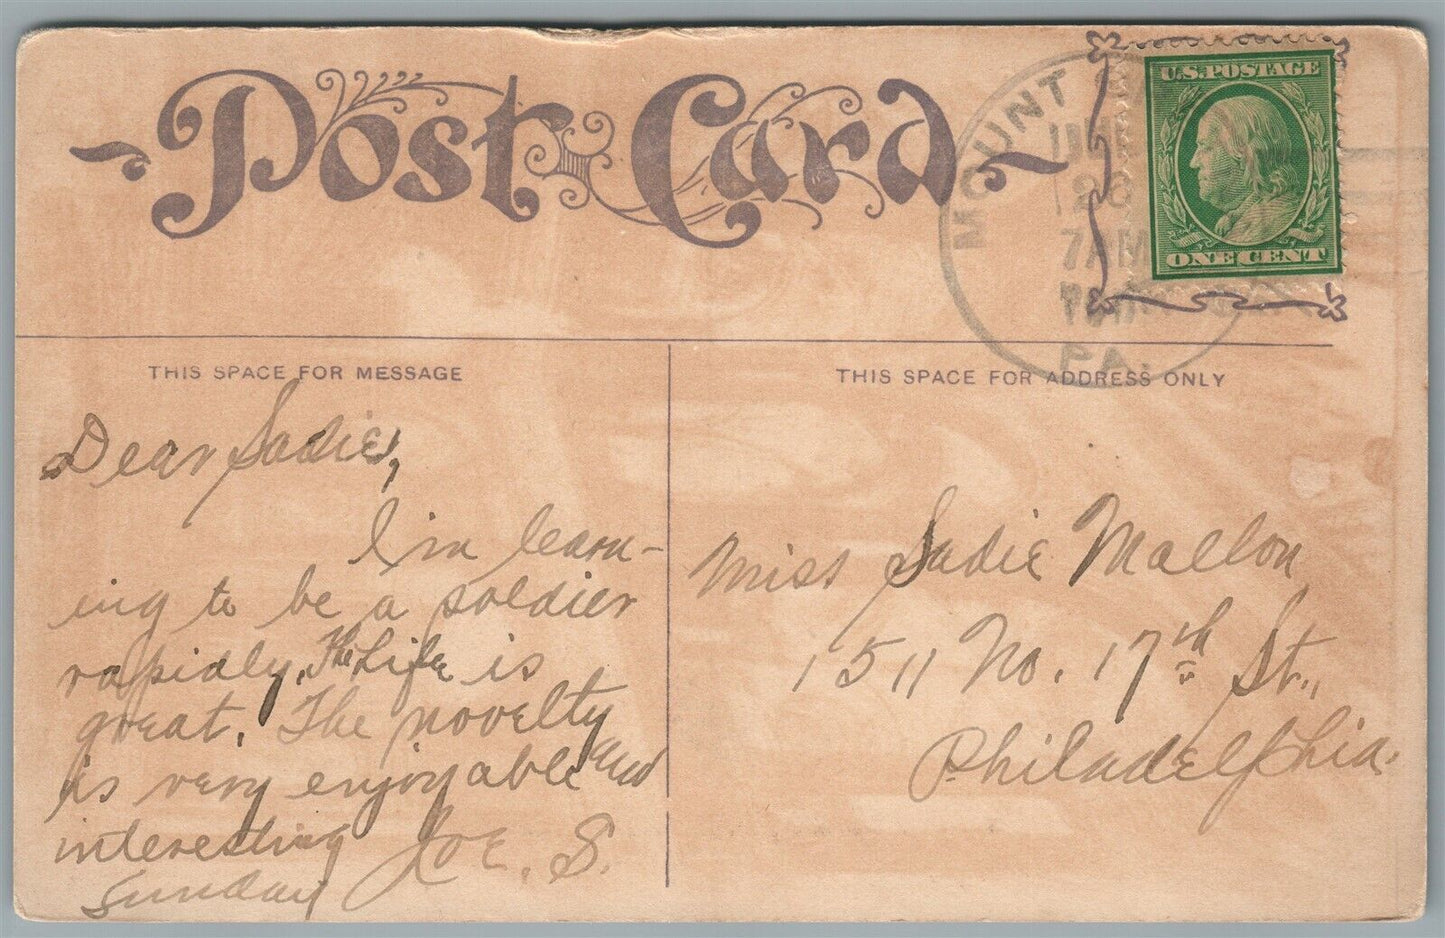 Post Card
U.S. POSTAGE
ONE CENT
MOUNT
26
7 AM
PA.
THIS SPACE FOR MESSAGE
THIS SPACE FOR ADDRESS ONLY
Dear Sadie,
I'm learn-
ing to be a soldier
rapidly. The Life is
great. The novelty
is very enjoyable and
interesting Joe. S.
Sunday
Miss Sadie Mallon
1511 No. 17th St.,
Philadelphia.